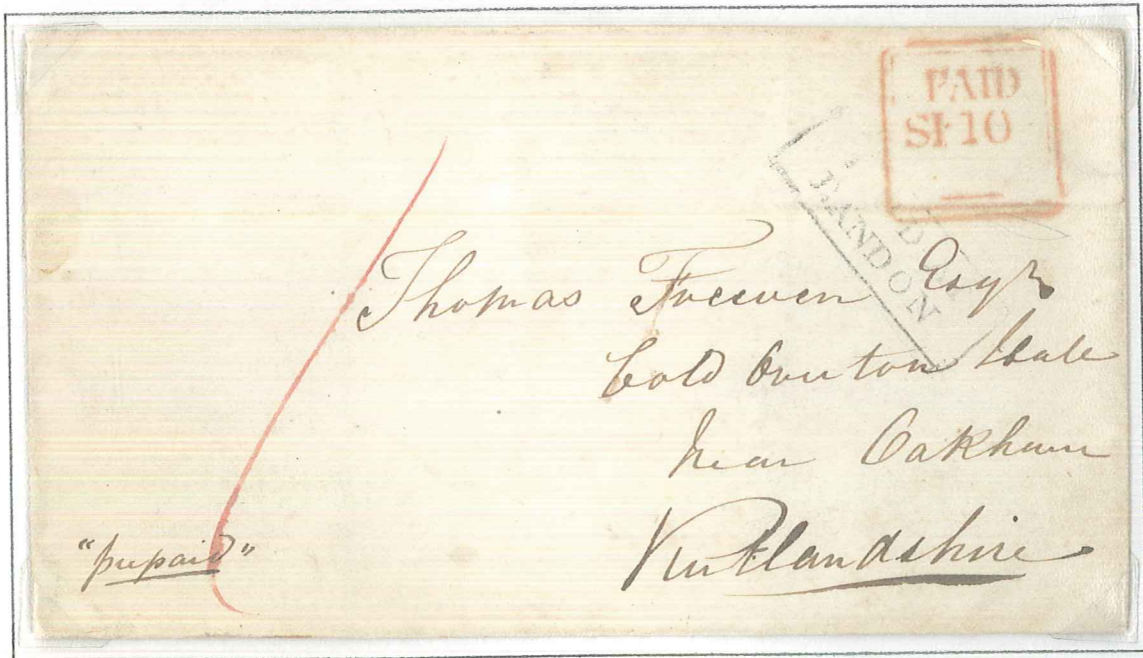 PAID
SP 10
BANDON
Thomas Frewen Esqr
Cold Overton Hall
Near Oakham
Rutlandshire
"prepaid"